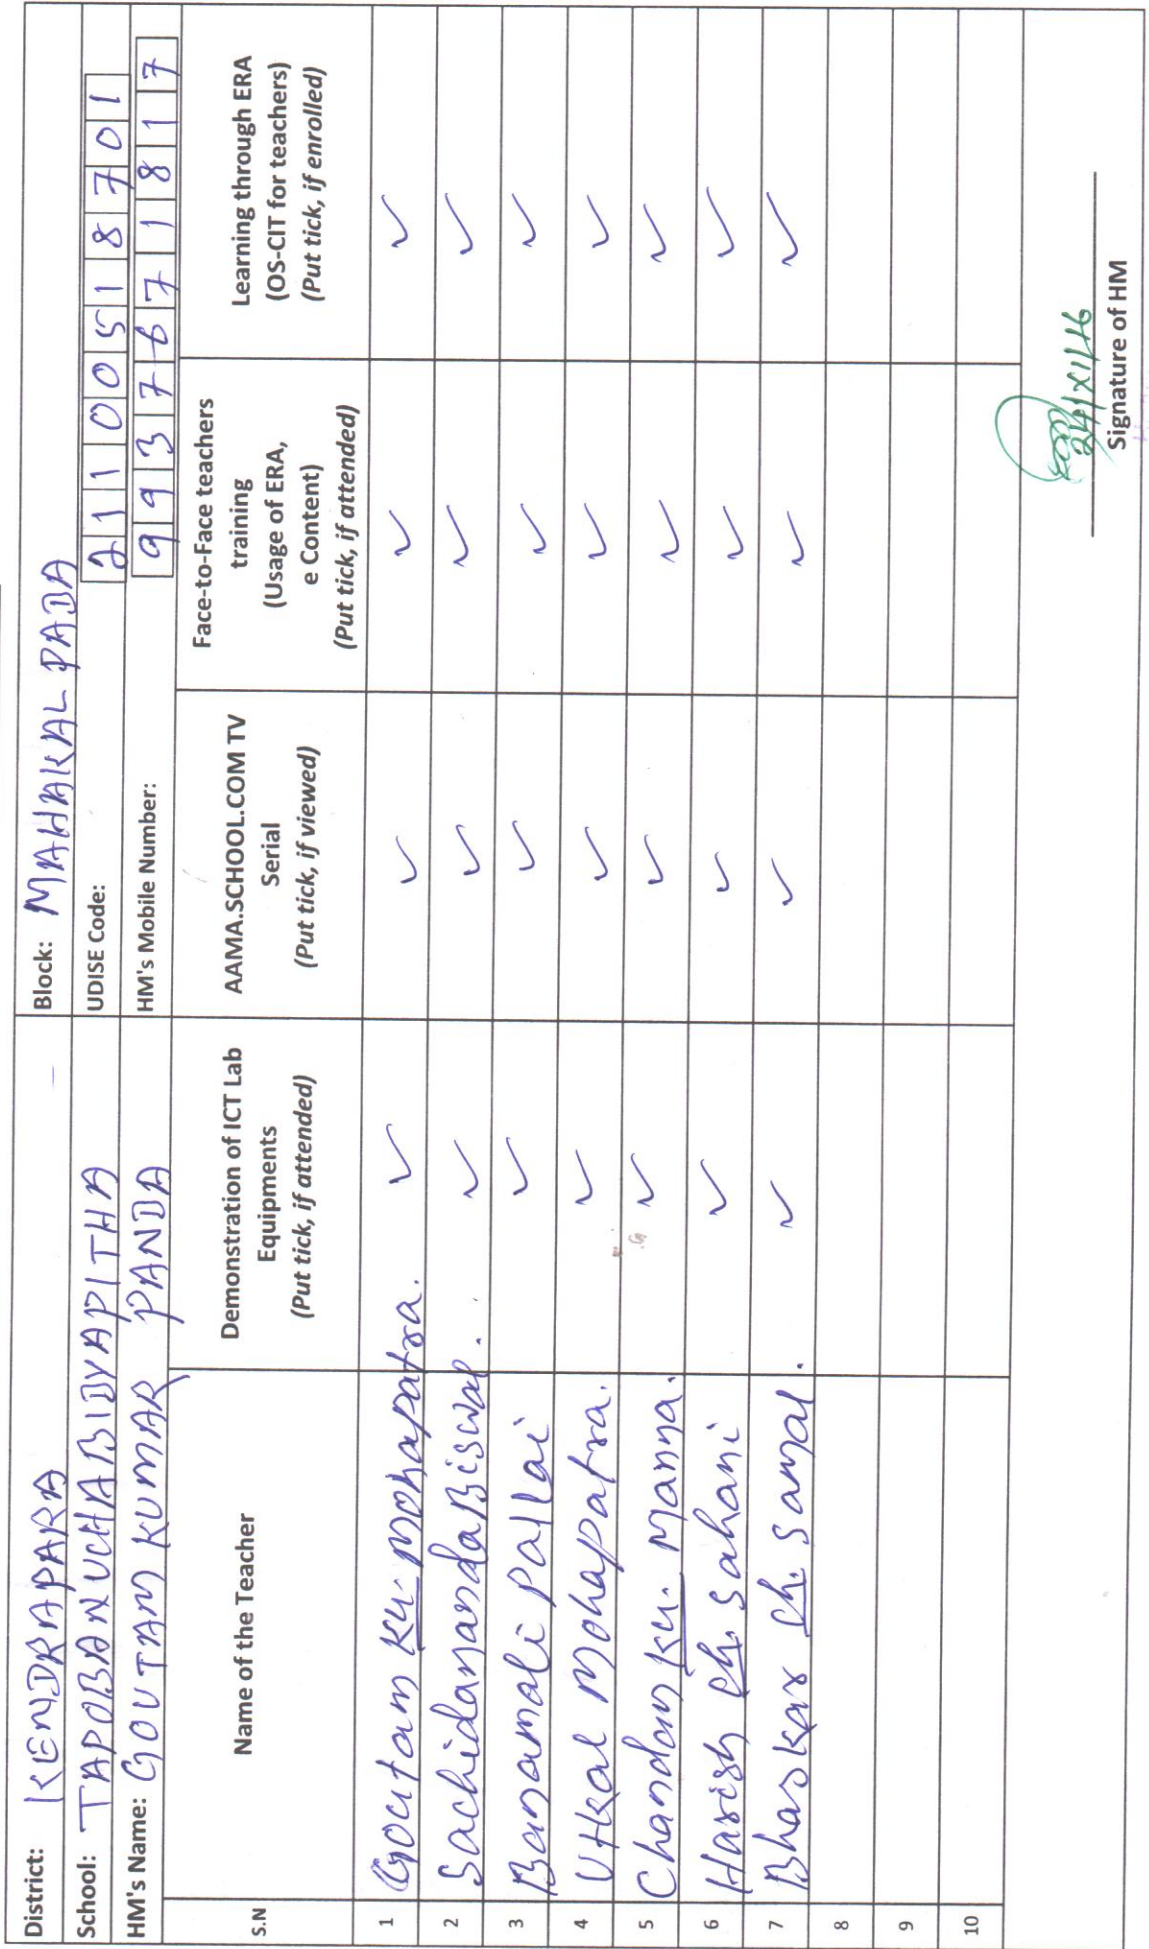 District: KENDRAPARA Block: MAHAKALPADA
School: TAPOBANUCHABIDYAPITHA UDISE Code: 21100518701
HM's Name: GOUTAM KUMAR PANDA HM's Mobile Number: 9937671817
S.N Name of the Teacher Demonstration of ICT Lab Equipments (Put tick, if attended) AAMA.SCHOOL.COM TV Serial (Put tick, if viewed) Face-to-Face teachers training (Usage of ERA, e Content) (Put tick, if attended) Learning through ERA (OS-CIT for teachers) (Put tick, if enrolled)
1 Goutam Ku. Mohapatra. ✓ ✓ ✓ ✓
2 Sachidananda Biswal. ✓ ✓ ✓ ✓
3 Banamali Pallai ✓ ✓ ✓ ✓
4 Utkal Mohapatra. ✓ ✓ ✓ ✓
5 Chandan Ku. Manna. ✓ ✓ ✓ ✓
6 Harish Ch. Sahani ✓ ✓ ✓ ✓
7 Bhaskar Ch. Samal. ✓ ✓ ✓ ✓
8
9
10
Signature of HM